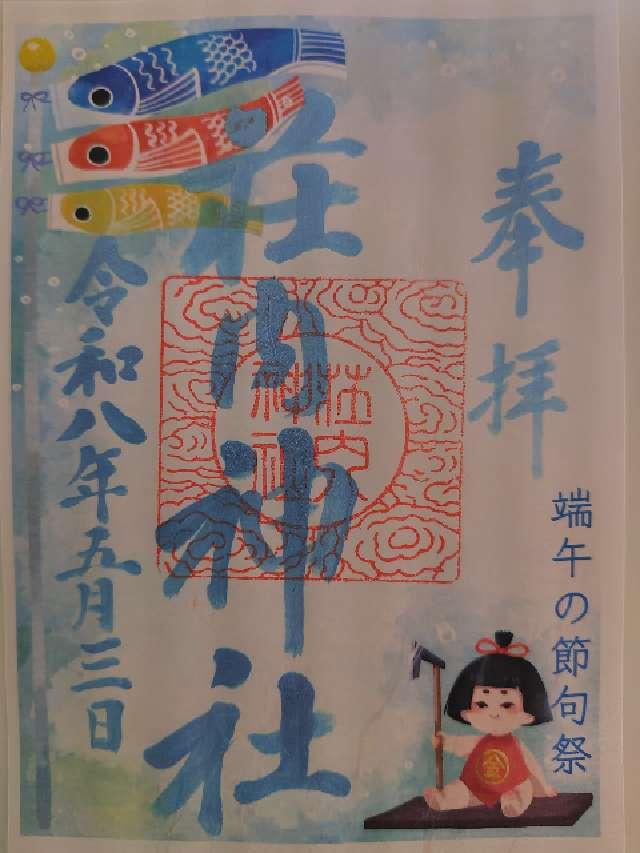 奉拝
端午の節句祭
荘内神社
荘内
神社
令和八年五月三日
金